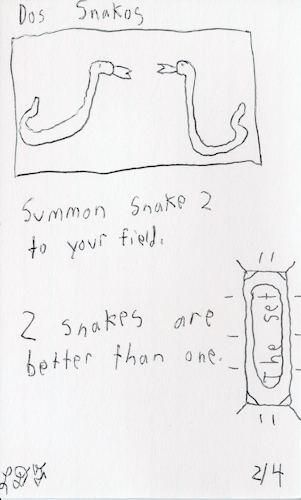 Dos Snakos
Summon Snake 2
to your field.
2 snakes are
better than one.
The set
2/4